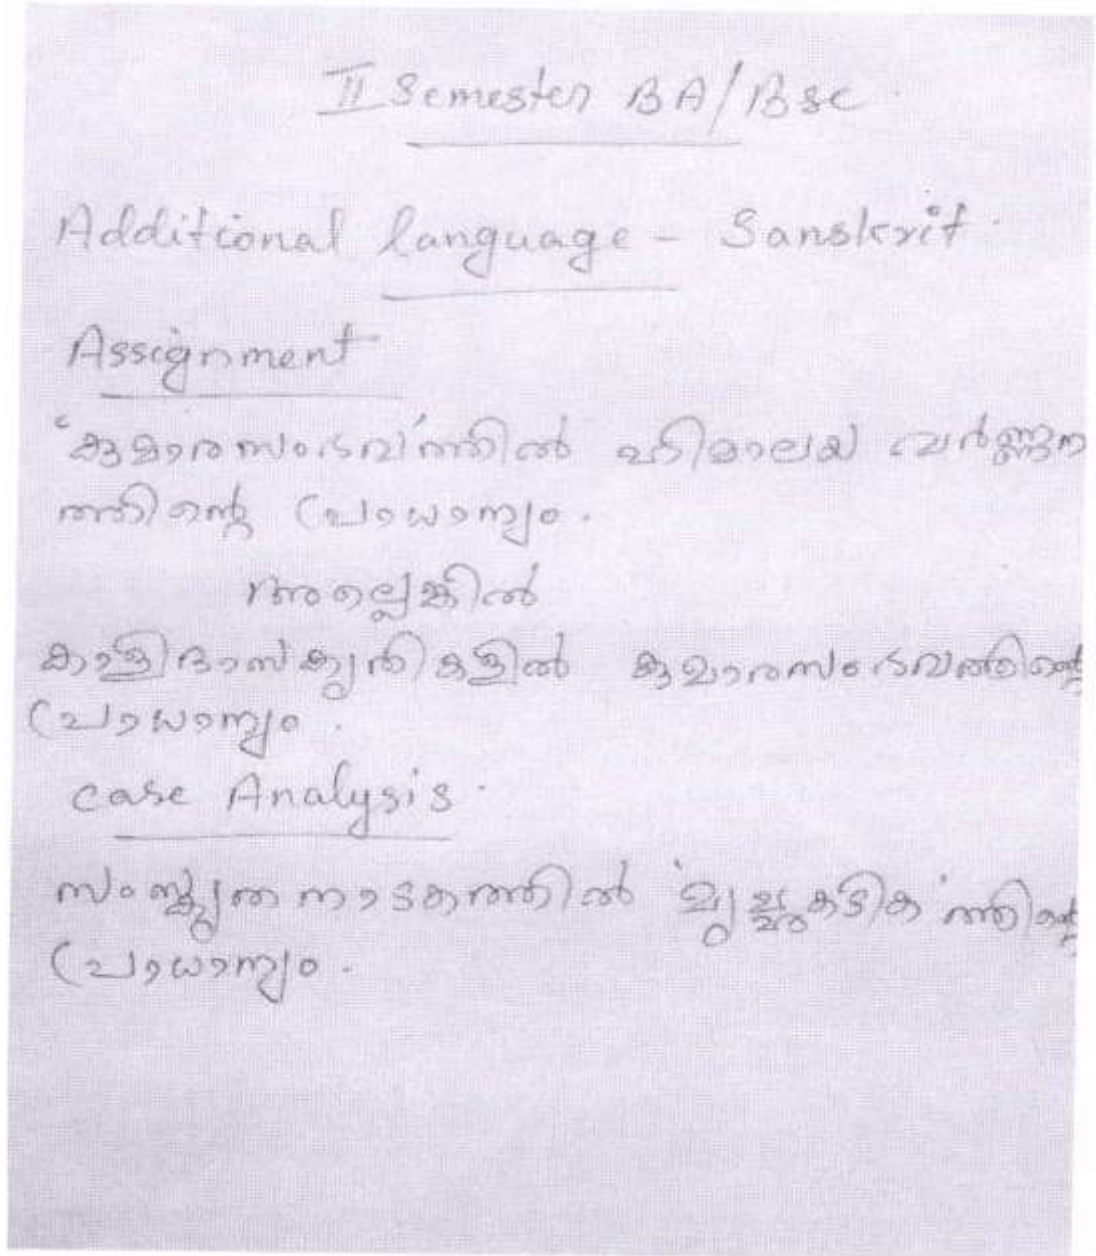 II Semester BA/BSc
Additional language - Sanskrit.
Assignment
'കുമാരസംഭവ'ത്തിൽ ഹിമാലയ വർണ്ണന
ത്തിന്റെ പ്രാധാന്യം.
അല്ലെങ്കിൽ
കാളിദാസകൃതികളിൽ കുമാരസംഭവത്തിന്റെ
പ്രാധാന്യം.
Case Analysis.
സംസ്കൃത നാടകത്തിൽ 'മൃച്ഛകടിക'ത്തിന്റെ
പ്രാധാന്യം.